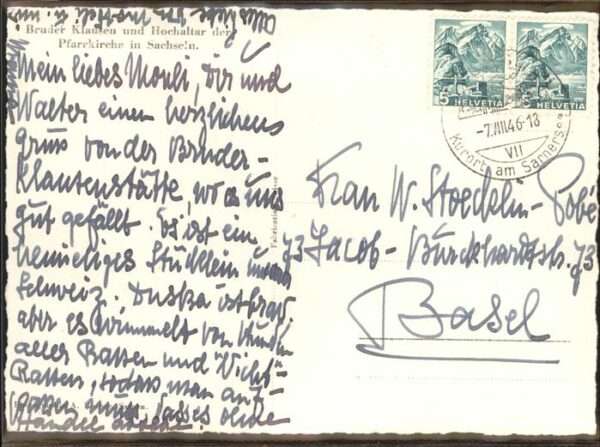 Bruder Klausen und Hochaltar der
Pfarrkirche in Sachseln.
Mein liebes Mouli, Dir und
Walter einen herzlichen
Gruss von der Bruder-
klausenstätte, wo es uns
gut gefällt. Es ist ein
heimeliges Stücklein
Schweiz. Duska ist brav
aber es wimmelt von Hunden
aller Rassen und "Nicht"-
Rassen, sodass man auf-
passen muss, dass es ohne
Händel
5 HELVETIA
5 HELVETIA
-7.VIII.46-18
VII
Kurort am Sarnersee
Frau W. Stoecklin-
73 Jacob-Burckhardtstr. 73
Basel